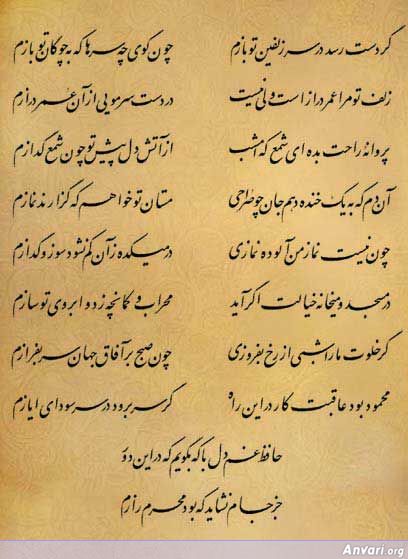 گر دست رسد در سر زلفین تو بازم چون گوی چه سرها که به چوگان تو بازم
زلف تو مرا عمر دراز است ولی نیست در دست سر مویی از آن عمر درازم
پروانه راحت بده ای شمع که امشب از آتش دل پیش تو چون شمع گدازم
آن دم که به یک خنده دهم جان چو صراحی مستان تو خواهم که گزارند نمازم
چون نیست نماز من آلوده نمازی در میکده زآن کم نشود سوز و گدازم
در مسجد و میخانه خیالت اگر آید محراب و کمانچه ز دو ابروی تو سازم
گر خلوت ما را شبی از رخ بفروزی چون صبح بر آفاق جهان سر بفرازم
محمود بود عاقبت کار در این راه گر سر برود در سر سودای ایازم
حافظ غم دل با که بگویم که در این دور
جز جام نشاید که بود محرم رازم
Anvari.org